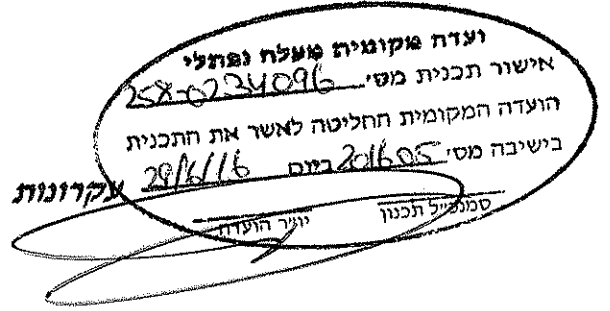 ועדה מקומית מעלה נפתלי
אישור תכנית מס' 258-0234096
הועדה המקומית החליטה לאשר את התכנית
בישיבה מס' 201605 ביום 29/6/16
עקרונות
סמנכ"ל תכנון יו"ר הועדה